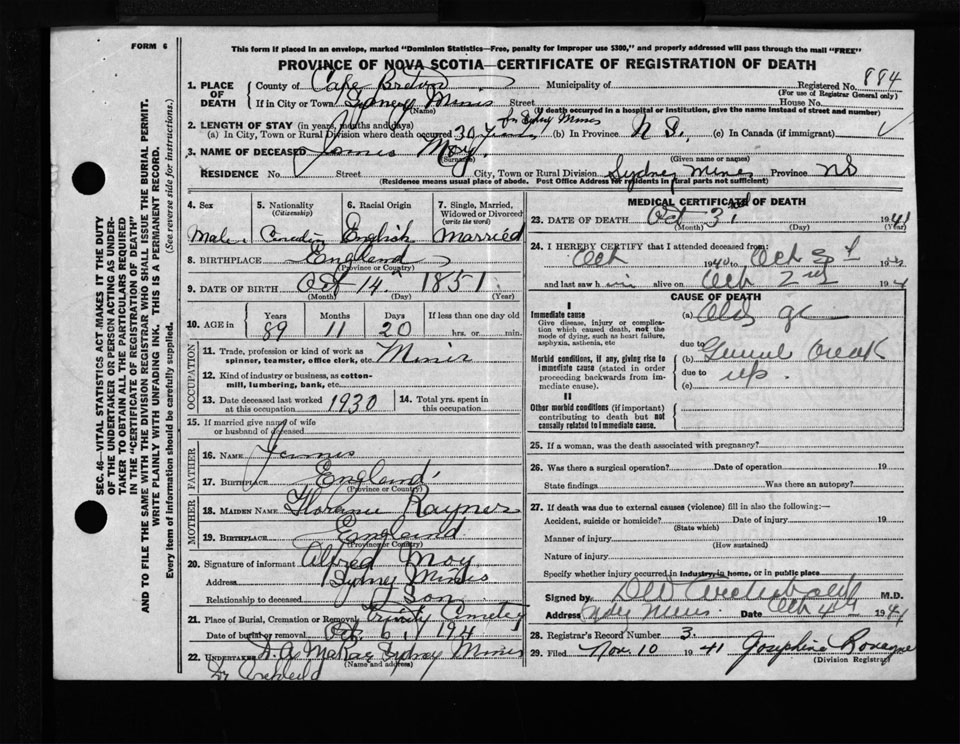 FORM 6
This form if placed in an envelope, marked "Dominion Statistics—Free, penalty for improper use $300," and properly addressed will pass through the mail "FREE"
PROVINCE OF NOVA SCOTIA—CERTIFICATE OF REGISTRATION OF DEATH
SEC. 46—VITAL STATISTICS ACT MAKES IT THE DUTY
OF THE UNDERTAKER OR PERSON ACTING AS UNDER-
TAKER TO OBTAIN ALL THE PARTICULARS REQUIRED
IN THE "CERTIFICATE OF REGISTRATION OF DEATH"
AND TO FILE THE SAME WITH THE DIVISION REGISTRAR WHO SHALL ISSUE THE BURIAL PERMIT.
WRITE PLAINLY WITH UNFADING INK. THIS IS A PERMANENT RECORD.
Every item of information should be carefully supplied. (See reverse side for instructions.)
1. PLACE OF DEATH County of Cape Breton Municipality of Registered No. 884
(For use of Registrar General only)
If in City or Town Sydney Mines Street House No.
(Name) (If death occurred in a hospital or institution, give the name instead of street and number)
2. LENGTH OF STAY (in years, months and days) In Sydney Mines
(a) In City, Town or Rural Division where death occurred 30 years (b) In Province N S. (c) In Canada (if immigrant)
3. NAME OF DECEASED James Moy
(Surname) (Given name or names)
RESIDENCE No. Street City, Town or Rural Division Sydney Mines Province NS
(Residence means usual place of abode. Post Office Address for residents in rural parts not sufficient)
4. Sex
Male
5. Nationality
(Citizenship)
Canadian
6. Racial Origin
English
7. Single, Married,
Widowed or Divorced
(write the word)
Married
8. BIRTHPLACE England
(Province or Country)
9. DATE OF BIRTH Oct 14 1851
(Month) (Day) (Year)
10. AGE in Years Months Days If less than one day old
89 11 20 hrs. or min.
OCCUPATION
11. Trade, profession or kind of work as
spinner, teamster, office clerk, etc. Miner
12. Kind of industry or business, as cotton-
mill, lumbering, bank, etc.
13. Date deceased last worked
at this occupation 1930
14. Total yrs. spent in
this occupation
15. If married give name of wife
or husband of deceased
FATHER
16. NAME James
17. BIRTHPLACE England
(Province or Country)
MOTHER
18. MAIDEN NAME Rayner
19. BIRTHPLACE England
(Province or Country)
20. Signature of informant Alfred Moy
Address Sydney Mines
Relationship to deceased Son
21. Place of Burial, Cremation or Removal Trinity Cemetery
Date of burial or removal Oct 6, 1941
22. UNDERTAKER Sydney Mines
(Name and address)
MEDICAL CERTIFICATE OF DEATH
23. DATE OF DEATH Oct 3rd 1941
(Month) (Day) (Year)
24. I HEREBY CERTIFY that I attended deceased from:
Oct 1940 to Oct 194
and last saw him alive on Oct 2nd 194
CAUSE OF DEATH
I
Immediate cause
Give disease, injury or complica-
tion which caused death, not the
mode of dying, such as heart failure,
asphyxia, asthenia, etc
(a) Old age
due to
Morbid conditions, if any, giving rise to
immediate cause (stated in order
proceeding backwards from im-
mediate cause).
(b) General break
due to up.
(c)
II
Other morbid conditions (if important)
contributing to death but not
causally related to immediate cause.
25. If a woman, was the death associated with pregnancy?
26. Was there a surgical operation? Date of operation 19
State findings Was there an autopsy?
27. If death was due to external causes (violence) fill in also the following:—
Accident, suicide or homicide? Date of injury 19
(State which)
Manner of injury
(How sustained)
Nature of injury
Specify whether injury occurred in industry, in home, or in public place
Signed by M.D.
Address Sydney Mines Date Oct 4th 1941
28. Registrar's Record Number 3.
29. Filed Nov. 10 1941 Josephine
(Division Registrar)